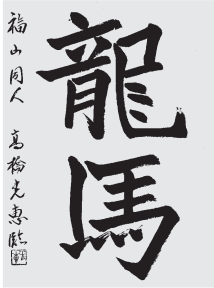 龍馬
福山同人 高橋光惠臨